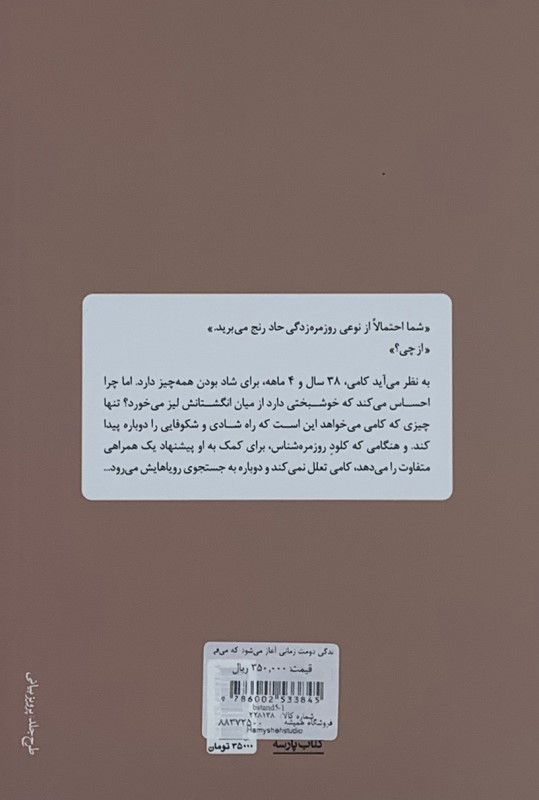 «شما احتمالاً از نوعی روزمره‌زدگی حاد رنج می‌برید.»
«از چی؟»
به نظر می‌آید کامی، ۳۸ سال و ۴ ماهه، برای شاد بودن همه‌چیز دارد. اما چرا
احساس می‌کند که خوشبختی دارد از میان انگشتانش لیز می‌خورد؟ تنها
چیزی که کامی می‌خواهد این است که راه شادی و شکوفایی را دوباره پیدا
کند. و هنگامی که کلودِ روزمره‌شناس، برای کمک به او پیشنهاد یک همراهی
متفاوت را می‌دهد، کامی تعلل نمی‌کند و دوباره به جستجوی رویاهایش می‌رود...
طرح جلد: پرویز بیانی
ندگی دومت زمانی آغاز می‌شود که می‌فه
قیمت: ۳۵۰,۰۰۰ ریال
9 786002 533845
شماره کالا: ۲۲۸۱۳۸
فروشگاه همیشه ۸۸۳۷۲۵۰۰
Hamyshehstudio
کتاب پارسه
۳۵۰۰۰ تومان